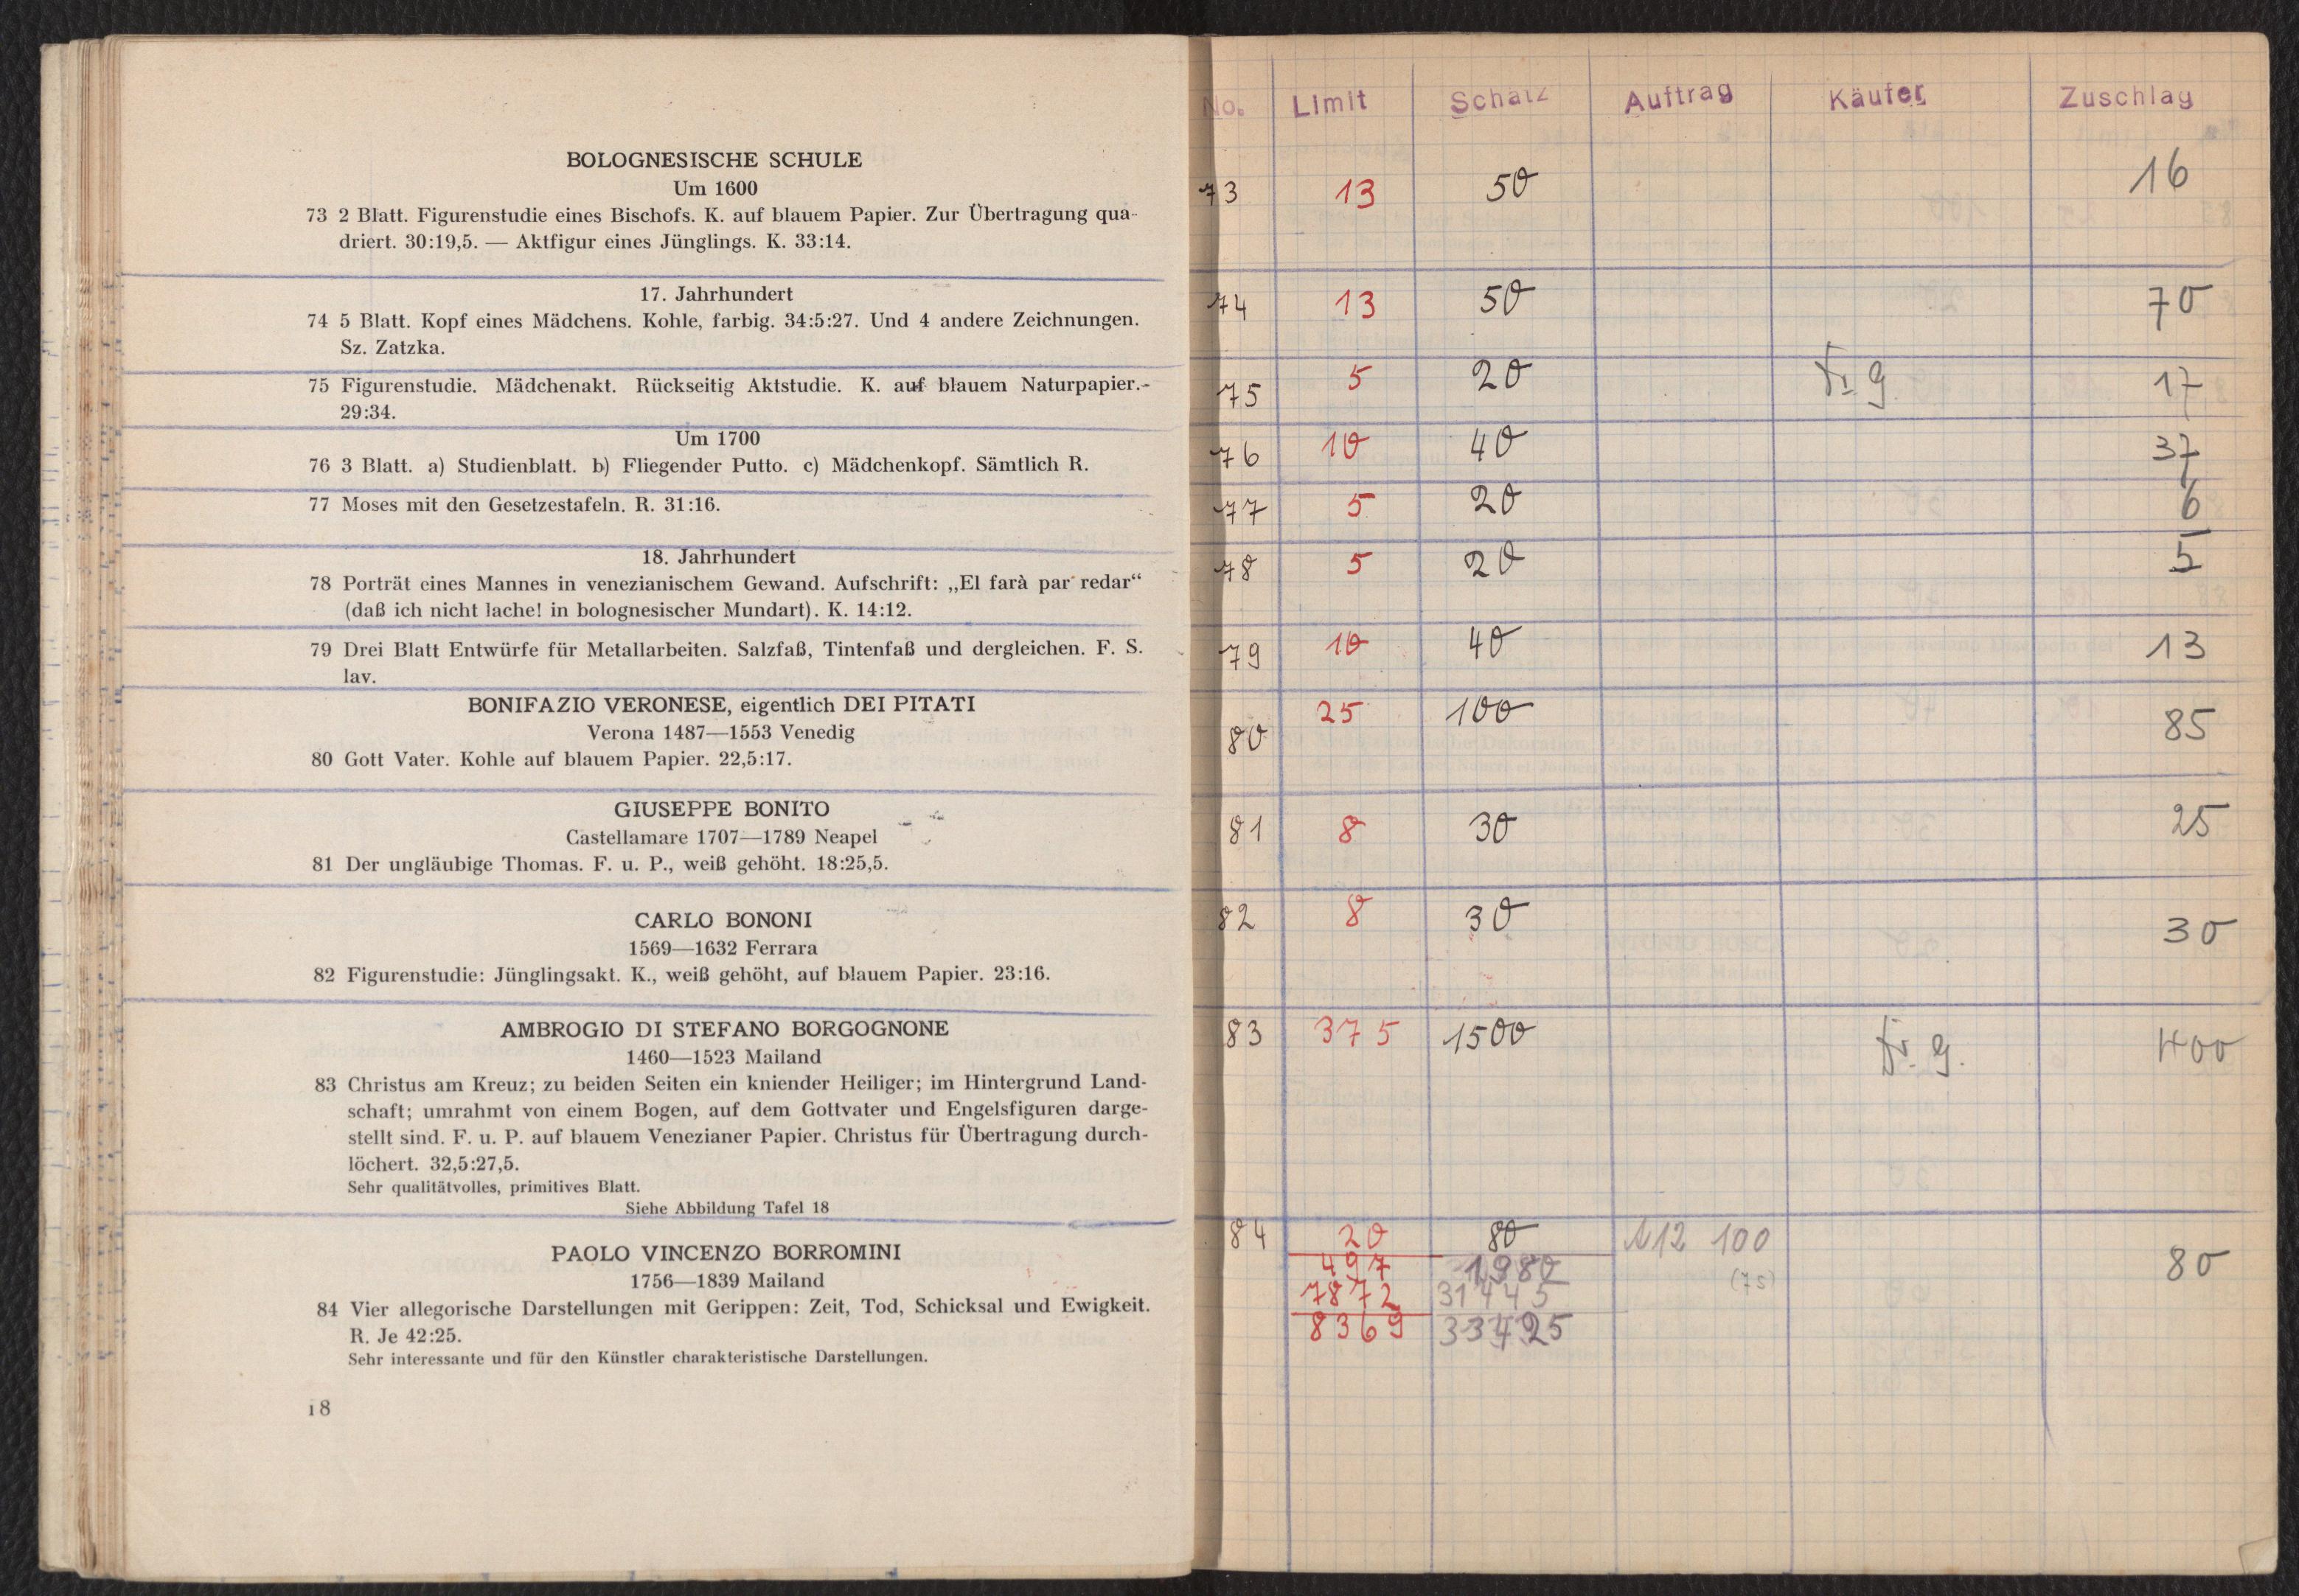 BOLOGNESISCHE SCHULE
Um 1600
73 2 Blatt. Figurenstudie eines Bischofs. K. auf blauem Papier. Zur Übertragung qua-
driert. 30:19,5. — Aktfigur eines Jünglings. K. 33:14.
17. Jahrhundert
74 5 Blatt. Kopf eines Mädchens. Kohle, farbig. 34:5:27. Und 4 andere Zeichnungen.
Sz. Zatzka.
75 Figurenstudie. Mädchenakt. Rückseitig Aktstudie. K. auf blauem Naturpapier.
29:34.
Um 1700
76 3 Blatt. a) Studienblatt. b) Fliegender Putto. c) Mädchenkopf. Sämtlich R.
77 Moses mit den Gesetzestafeln. R. 31:16.
18. Jahrhundert
78 Porträt eines Mannes in venezianischem Gewand. Aufschrift: „El farà par redar“
(daß ich nicht lache! in bolognesischer Mundart). K. 14:12.
79 Drei Blatt Entwürfe für Metallarbeiten. Salzfaß, Tintenfaß und dergleichen. F. S.
lav.
BONIFAZIO VERONESE, eigentlich DEI PITATI
Verona 1487—1553 Venedig
80 Gott Vater. Kohle auf blauem Papier. 22,5:17.
GIUSEPPE BONITO
Castellamare 1707—1789 Neapel
81 Der ungläubige Thomas. F. u. P., weiß gehöht. 18:25,5.
CARLO BONONI
1569—1632 Ferrara
82 Figurenstudie: Jünglingsakt. K., weiß gehöht, auf blauem Papier. 23:16.
AMBROGIO DI STEFANO BORGOGNONE
1460—1523 Mailand
83 Christus am Kreuz; zu beiden Seiten ein kniender Heiliger; im Hintergrund Land-
schaft; umrahmt von einem Bogen, auf dem Gottvater und Engelsfiguren darge-
stellt sind. F. u. P. auf blauem Venezianer Papier. Christus für Übertragung durch-
löchert. 32,5:27,5.
Sehr qualitätvolles, primitives Blatt.
Siehe Abbildung Tafel 18
PAOLO VINCENZO BORROMINI
1756—1839 Mailand
84 Vier allegorische Darstellungen mit Gerippen: Zeit, Tod, Schicksal und Ewigkeit.
R. Je 42:25.
Sehr interessante und für den Künstler charakteristische Darstellungen.
18
No. Limit Schätz Auftrag Käufer Zuschlag
73 13 50 16
74 13 50 70
75 5 20 17
76 10 40 37
77 5 20 6
78 5 20 5
79 10 40 13
80 25 100 85
81 8 30 25
82 8 30 30
83 375 1500 400
84 20 80 100 80
497 1980 (75)
7872 31445
8369 33425